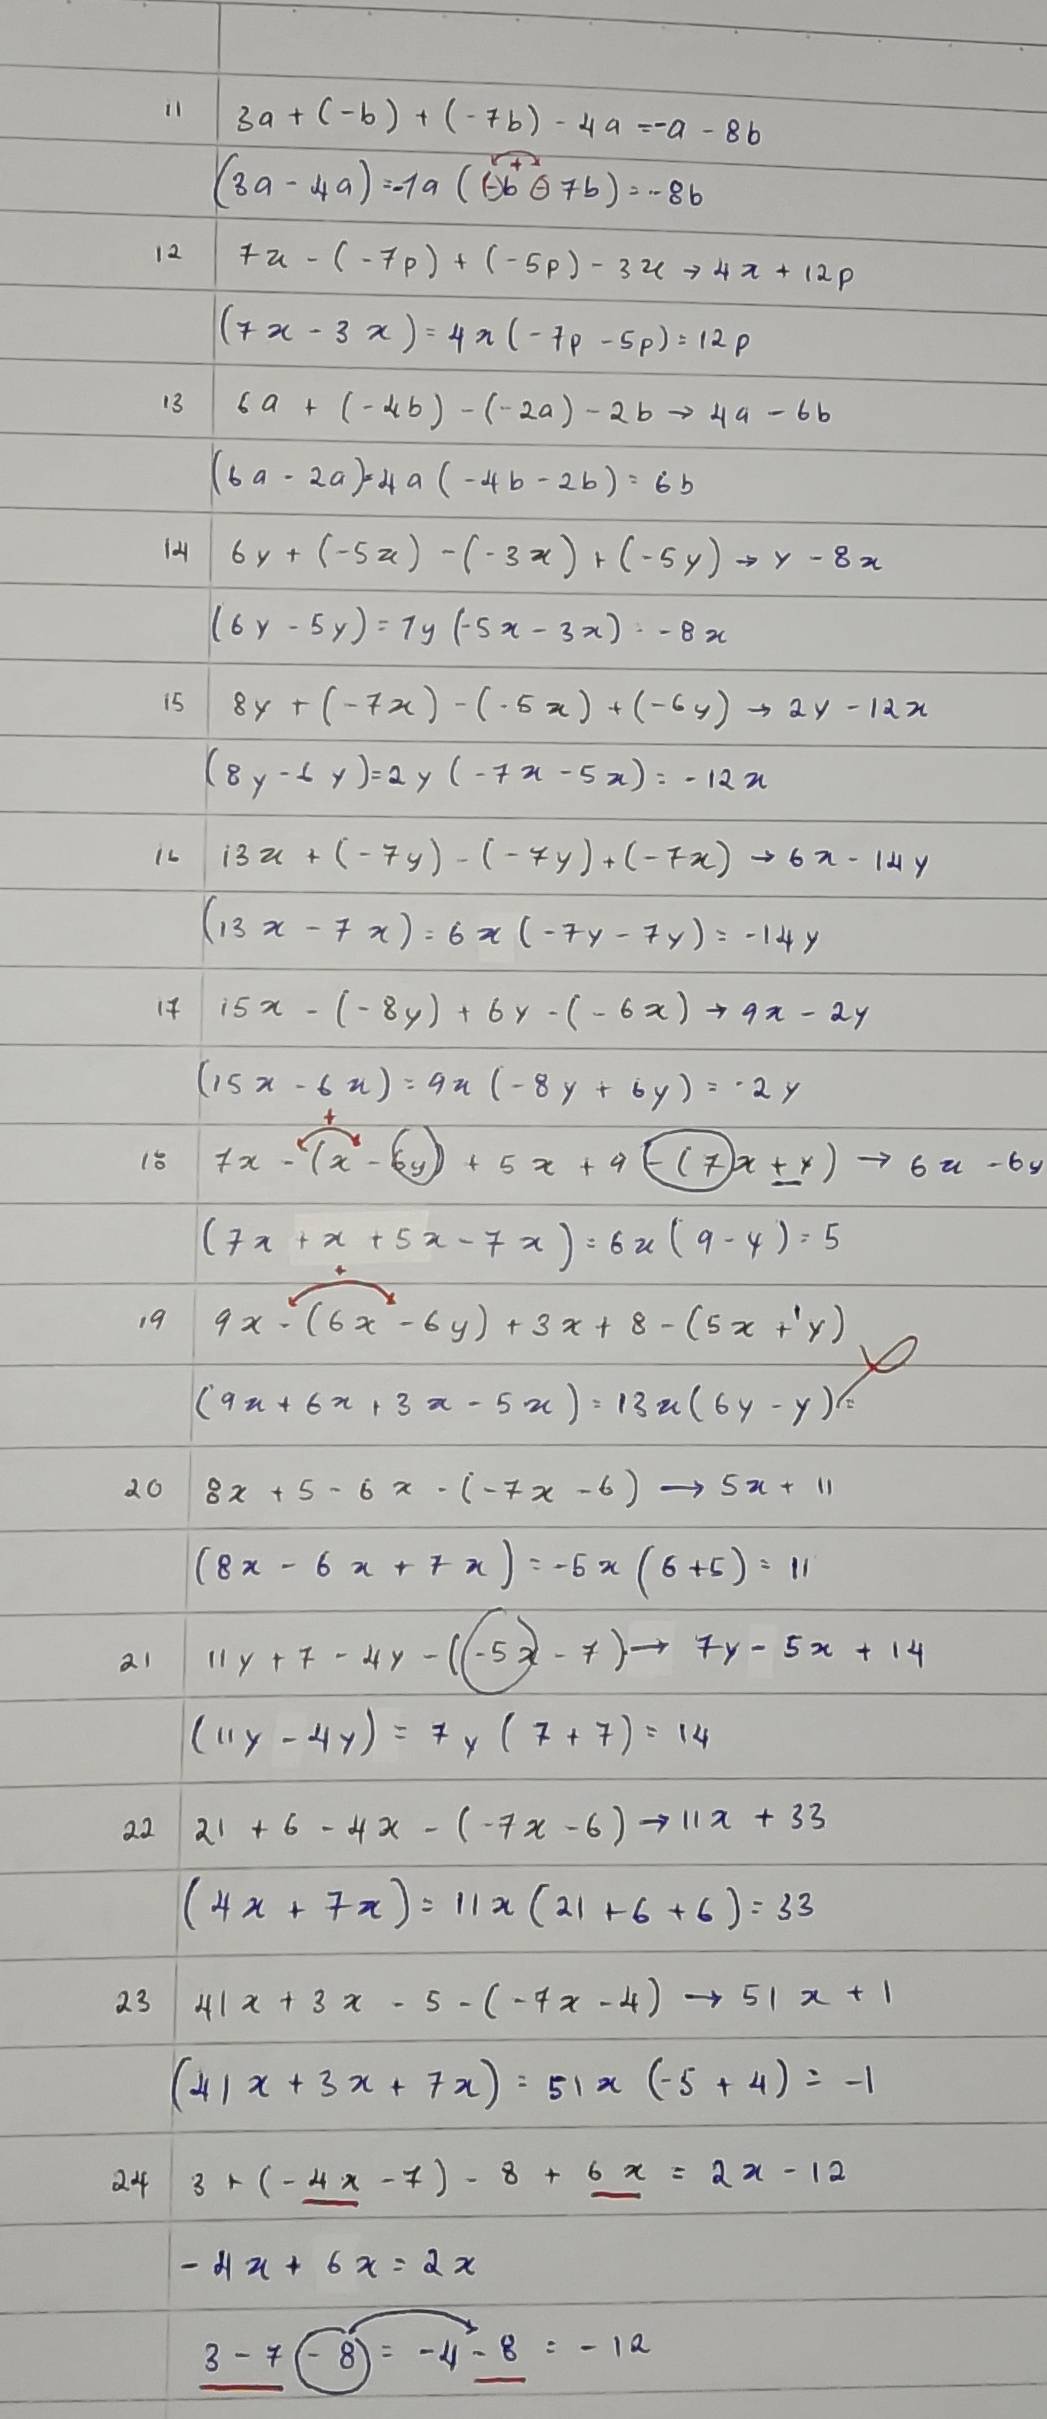 11 3a + (-b) + (-7b) - 4a = -a - 8b
(3a - 4a) = -1a (-b - 7b) = -8b
+
12 7x - (-7p) + (-5p) - 3x → 4x + 12p
(7x - 3x) = 4x (-7p - 5p) = 12p
13 6a + (-4b) - (-2a) - 2b → 4a - 6b
(6a - 2a) = 4a (-4b - 2b) = 6b
14 6y + (-5x) - (-3x) + (-5y) → y - 8x
(6y - 5y) = 1y (-5x - 3x) = -8x
15 8y + (-7x) - (-5x) + (-6y) → 2y - 12x
(8y - 6y) = 2y (-7x - 5x) = -12x
16 13x + (-7y) - (-7y) + (-7x) → 6x - 14y
(13x - 7x) = 6x (-7y - 7y) = -14y
17 15x - (-8y) + 6y - (-6x) → 9x - 2y
(15x - 6x) = 9x (-8y + 6y) = -2y
+
18 7x - (x - 6y) + 5x + 9 - (7x + y) → 6x - 6y
(7x + x + 5x - 7x) = 6x (9 - 4) = 5
+
19 9x - (6x - 6y) + 3x + 8 - (5x + 1y)
(9x + 6x + 3x - 5x) = 13x (6y - y) =
20 8x + 5 - 6x - (-7x - 6) → 5x + 11
(8x - 6x + 7x) = -5x (6 + 5) = 11
21 11y + 7 - 4y - (-5x - 7) → 7y - 5x + 14
(11y - 4y) = 7y (7 + 7) = 14
22 21 + 6 - 4x - (-7x - 6) → 11x + 33
(4x + 7x) = 11x (21 + 6 + 6) = 33
23 41x + 3x - 5 - (-7x - 4) → 51x + 1
(41x + 3x + 7x) = 51x (-5 + 4) = -1
24 3 + (-4x - 7) - 8 + 6x = 2x - 12
-4x + 6x = 2x
3 - 7 - 8 = -4 - 8 = -12